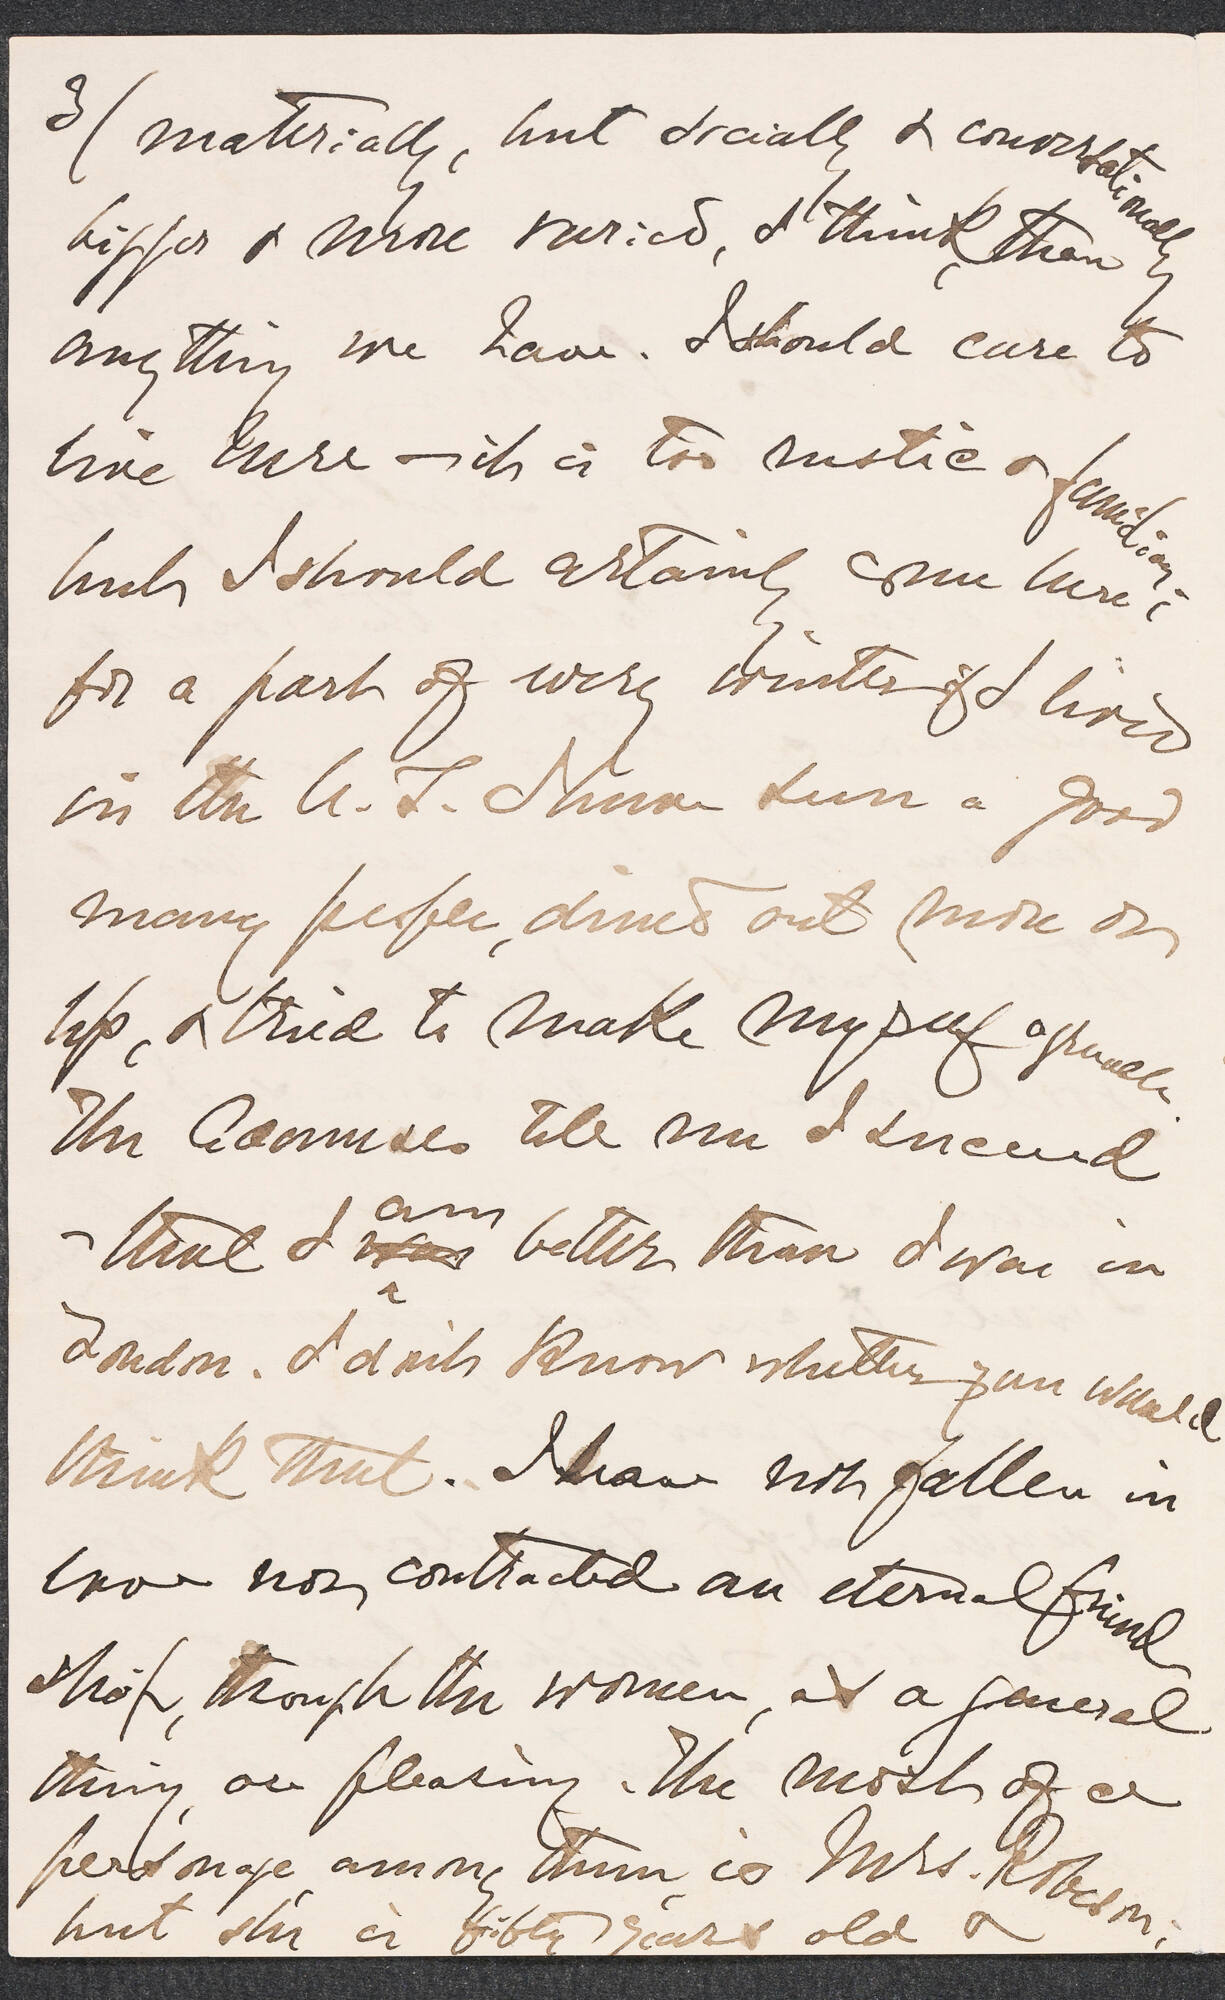 3( materially, but socially & conversationally
bigger & more varied, I think, than
anything we have. I should care to
live here — it is too rustic & familiar;
but I should certainly come here
for a part of every winter if I lived
in the U.S. I have seen a good
many people, dined out more or
less, & tried to make myself agreeable.
The Adamses tell me I succeed
— that I am was better than I was in
London. I don't know whether you would
think that. I have not fallen in
love nor contracted an eternal friend
ship, though the women, as a general
thing, are pleasing. The most of a
personage among them is Mrs. Robeson;
but she is fifty years old &